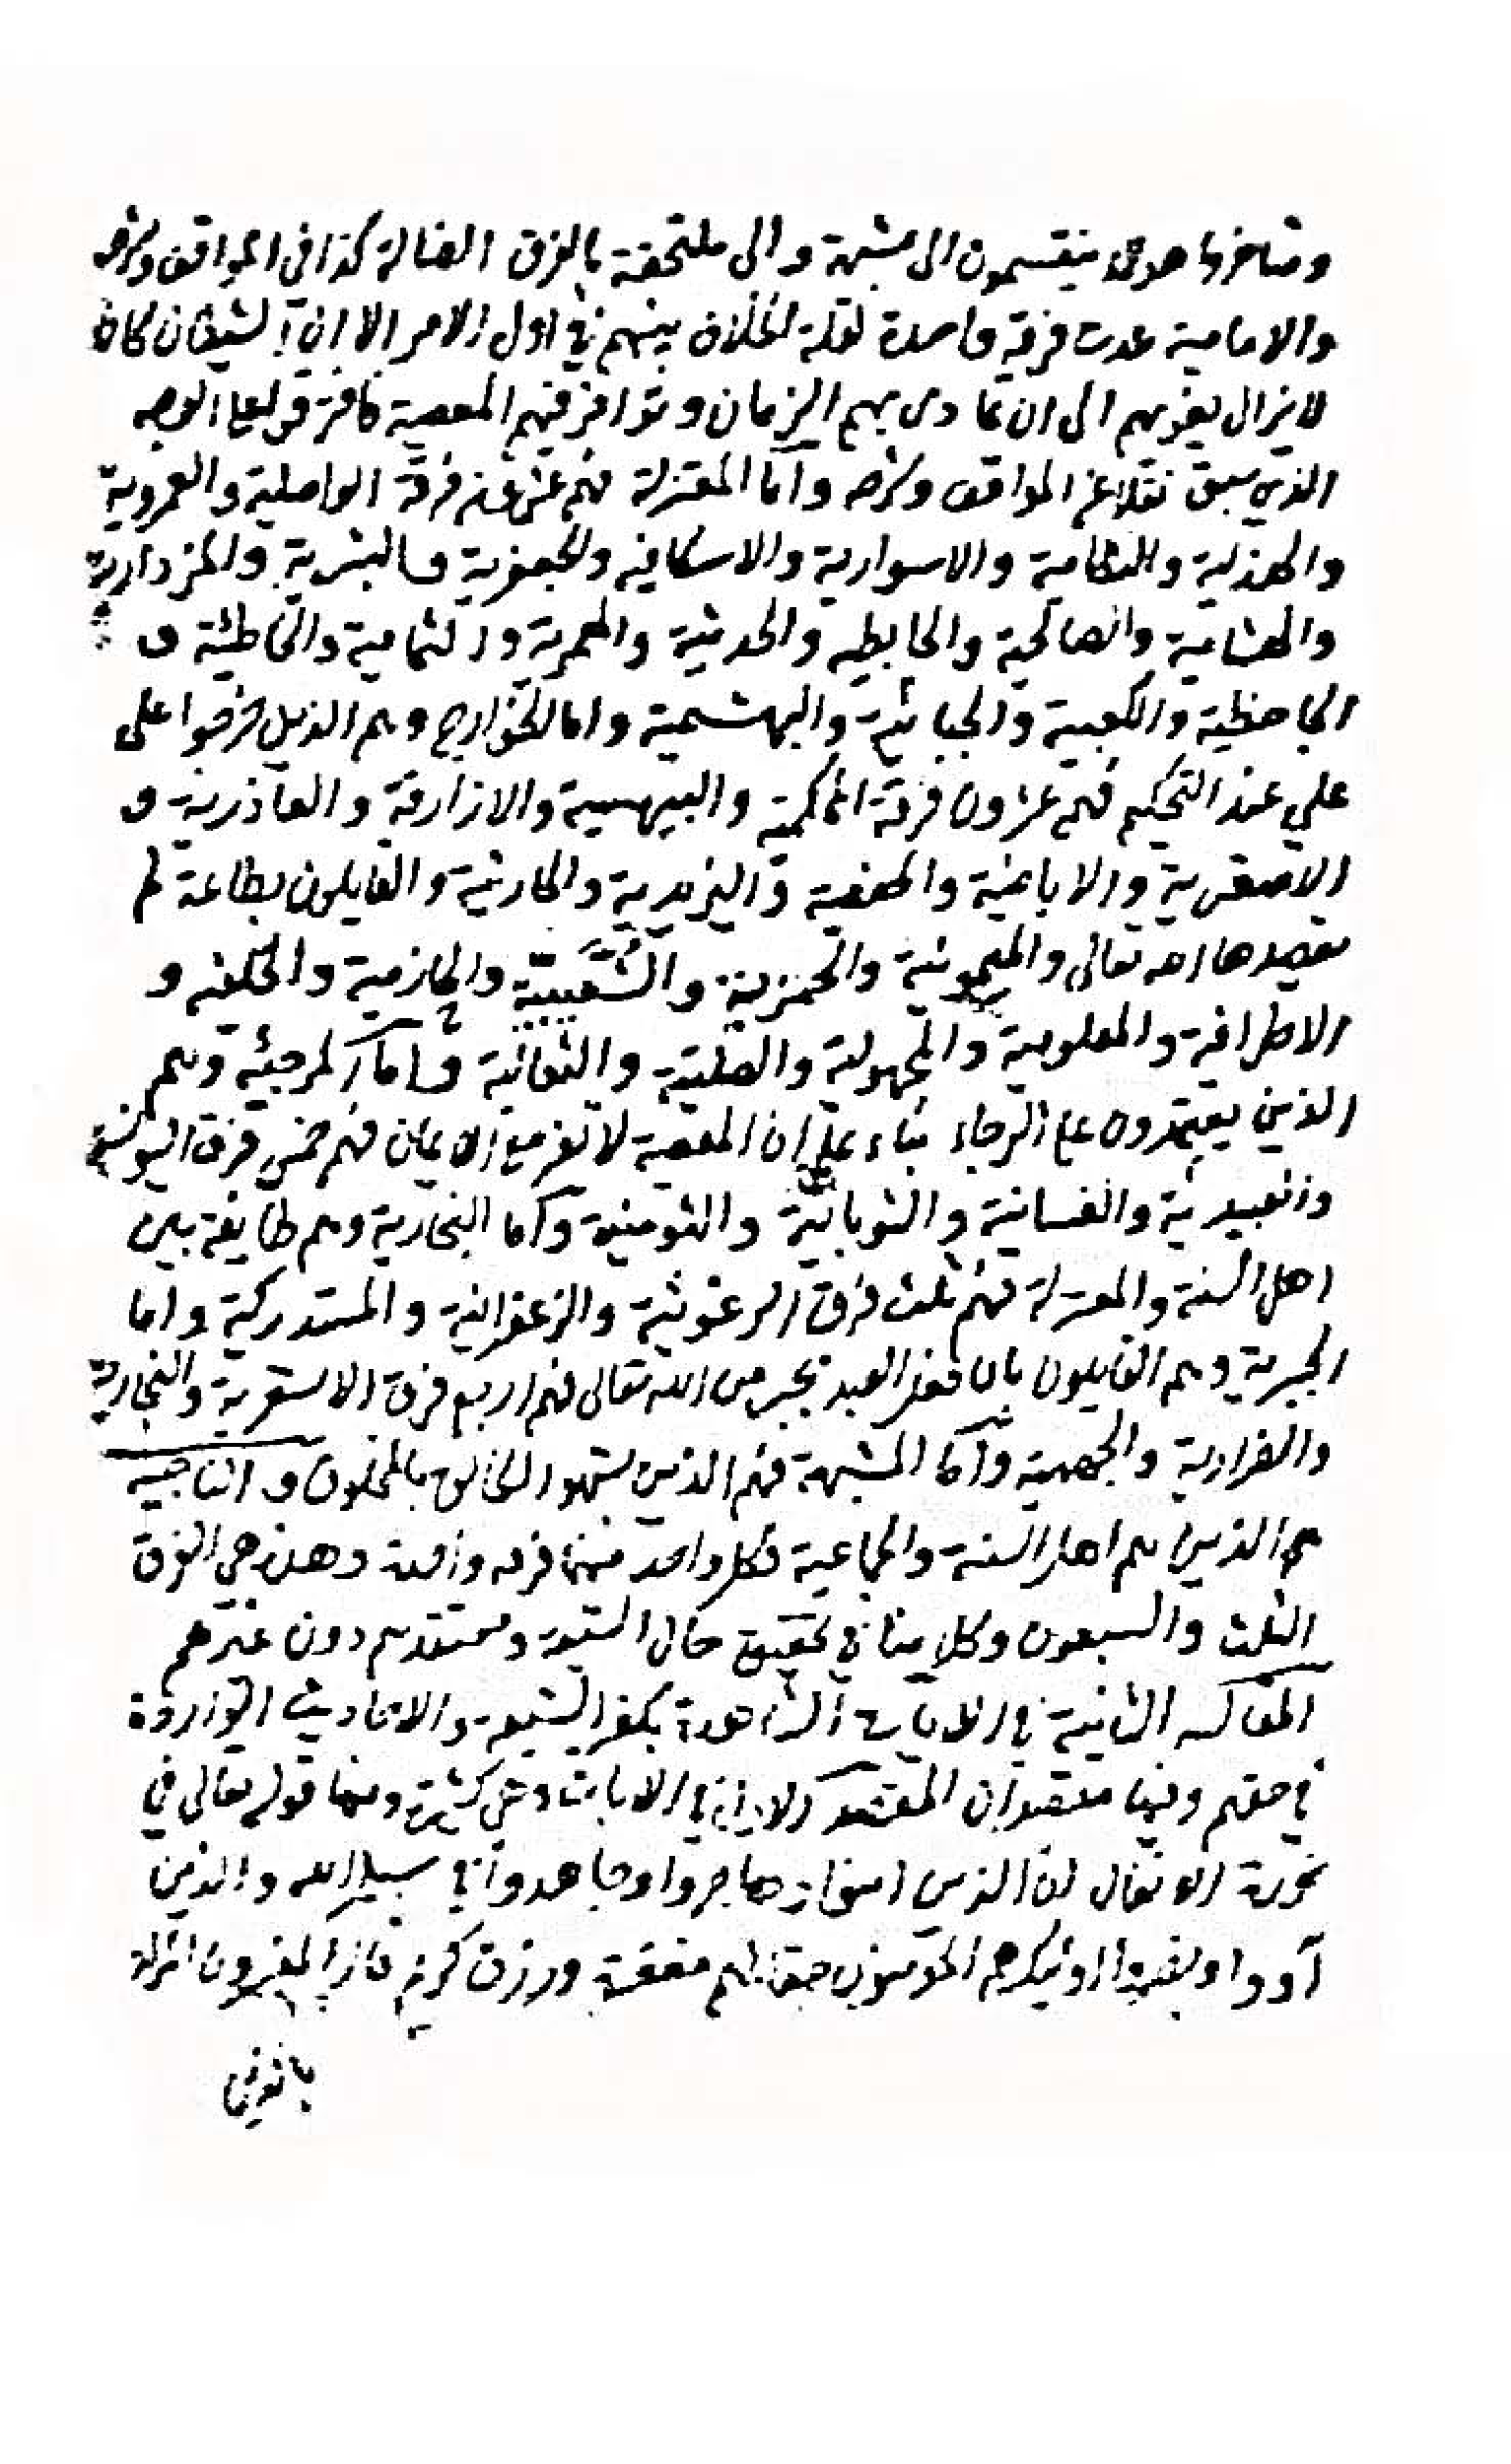 ومتأخروها هؤلاء ينقسمون الى مشبهة والى ملتحقة بالفرق الضالة كذا فى المواقف وشرحه
والامامية عدت فرقة واحدة لقلة الخلاف بينهم فى اول الامر الا ان الشيطان كان
لا يزال يغويهم الى ان تمادى بهم الزمان و فيهم المعصية على الوجه
الذي سبق نقلا عن المواقف وشرحه واما المعتزلة فهم عشرون فرقة الواصلية والعمروية
والهذلية والنظامية والاسوارية والاسكافية والجعفرية والبشرية والمزدارية
والهشامية والصالحية والحابطية والحدثية والمعمرية والثمامية والخاطئية و
الجاحظية والكعبية والجبائية والبهشمية واما الخوارج وهم الذين خرجوا على
علي عند التحكيم فهم عشرون فرقة المحكمية والبيهسية والازارقة والعاذرية و
الاصفرية والاباضية والحفصية واليزيدية والحارثية والقايلون بطاعة لم
يقصد بها الله تعالى والميمونية والحمزية والشعيبية والحازمية والخلفية و
الاطرافية والمعلومية والمجهولية والصلتية والثعالبة واما المرجئة وهم
الذين يعتمدون على الرجاء بناء على ان المعصية لا تضر مع الايمان فهم خمس فرق اليونسية
والعبيدية والغسانية والثوبانية والثومنية واما النجارية وهم طايفة بين
اهل السنة والمعتزلة فهم ثلث فرق البرغوثية والزعفرانية والمستدركة واما
الجبرية وهم القايلون بان فعل العبد بجبر من الله تعالى فهم اربع فرق الاشعرية والنجارية
والضرارية والجهمية واما المشبهة فهم الذين يشبهوا الخالق بالمخلوق و الناجية
هم الذين هم اهل السنة والجماعية فكل واحد منهما فرقة واحدة وهذه هي الفرق
الثلث والسبعون وكلامنا فى تحقيق حال الشيعة ومعتقدهم دون غيرهم
المقالة الثانية فى الايات الشاهدة بكفر الشيعة والاحاديث الواردة
فى حقهم وفيها مقصدان المقصد الاول فى الايات وهي كثيرة ومنها قوله تعالى في
سورة الانفال ان الذين امنوا وهاجروا وجاهدوا فى سبيل الله والذين
آووا ونصروا اولئك هم المؤمنون حقا لهم مغفرة ورزق كريم قال المفسرون المراد
بالذين